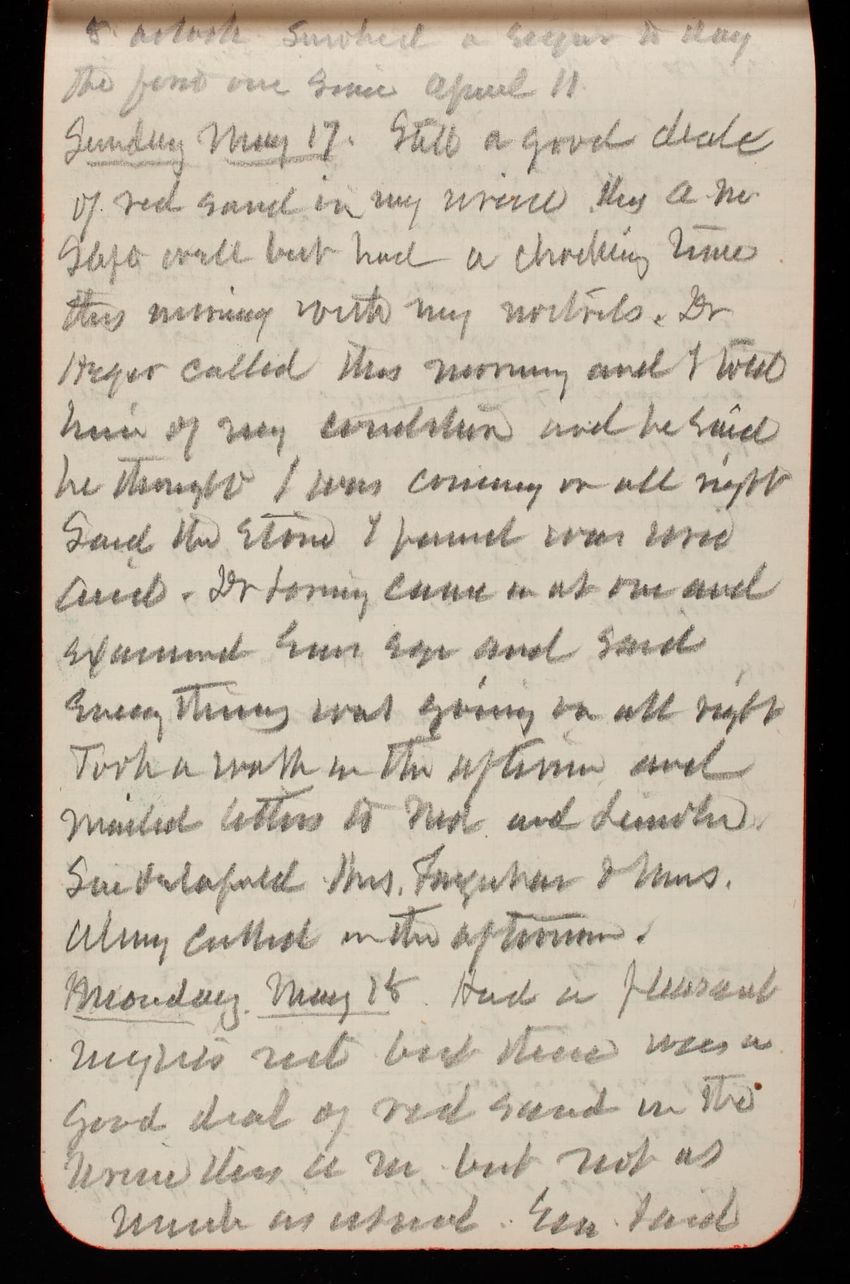 8 oclock Smoked a segar to day
the first one since April 11
Sunday May 17. Still a good deal
of red sand in my urine this A M
Slept well but had a chocking time
this morning with my nostrils. Dr
Heger called this morning and I told
him of my condition and he said
he thought I was coming on all right
Said the stone I found was uric
Acid. Dr Loring came in at one and
examined Eva's eye and said
everything was going on all right
Took a walk in the afternoon and
mailed letters to Ned and Lincoln.
Mrs. Farquhar & Mrs.
called in the afternoon.
Monday May 18 Had a pleasant
nights rest but there was a
good deal of red sand in the
urine this A M but not as
much as usual. Eva said